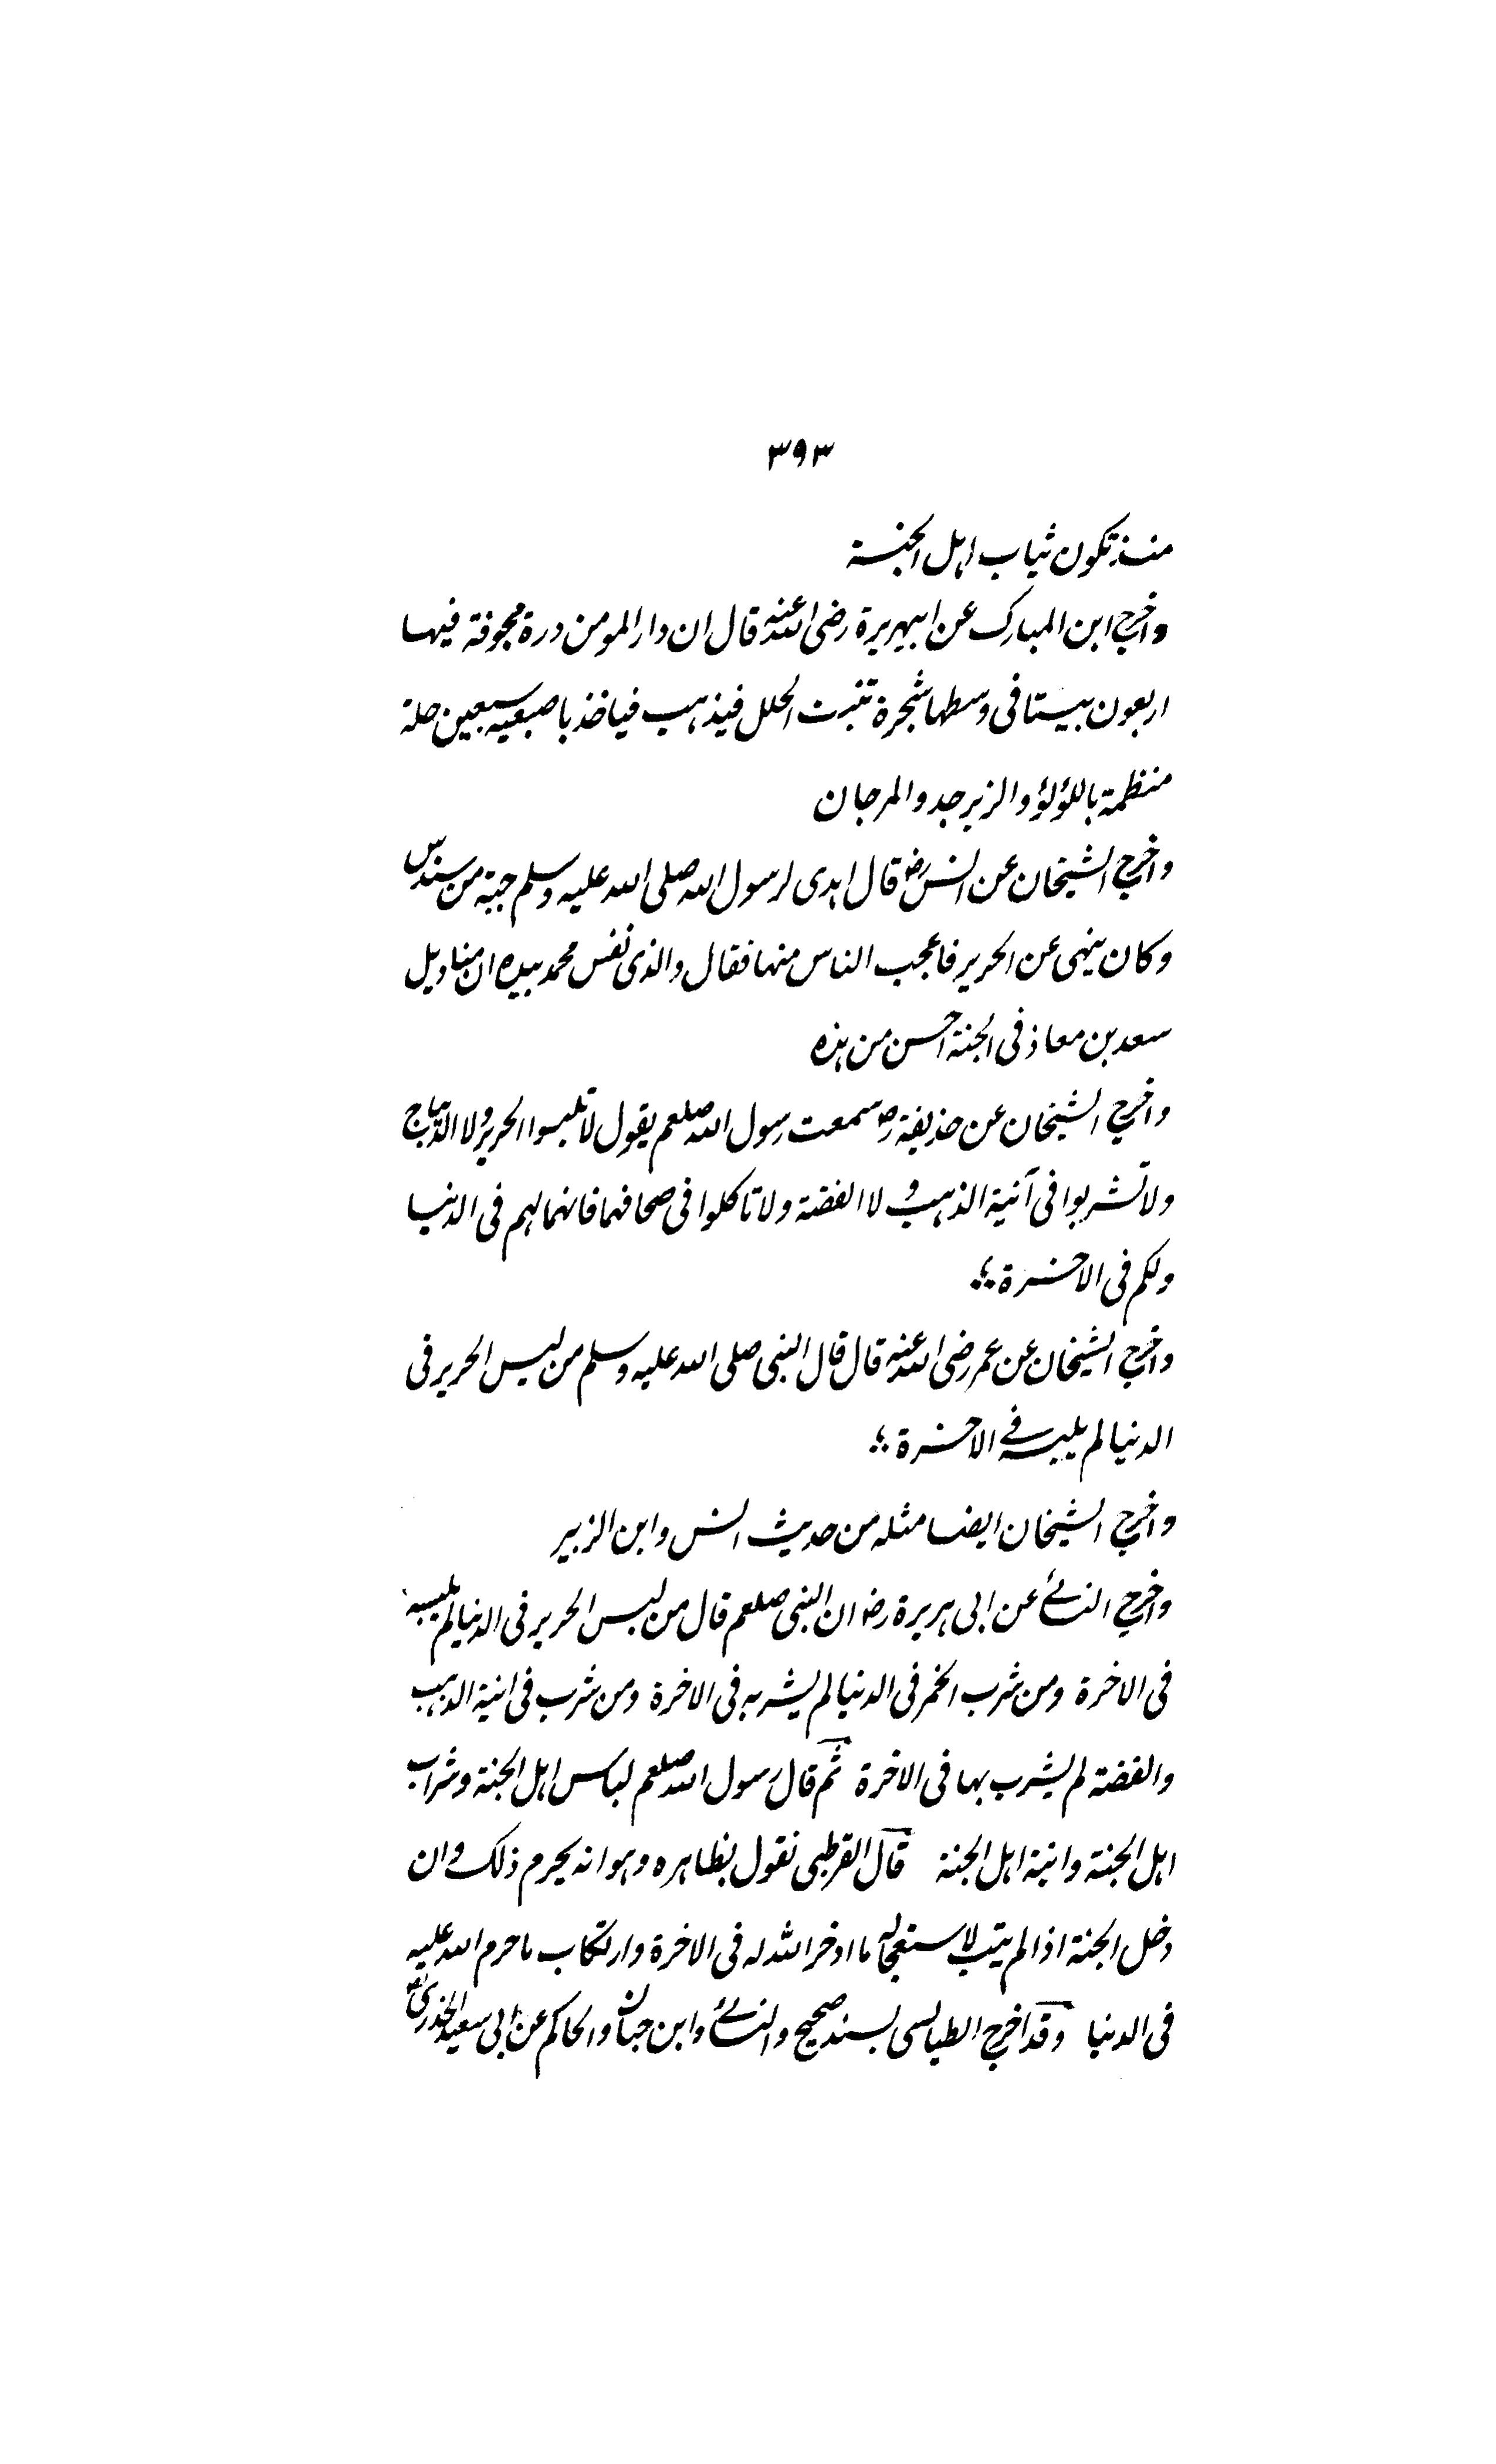 ۳۹۳
منه تكون ثياب اہل الجنة
واخرج ابن المبارک عن ابیہریرة رضی اللہ عنہ قال ان دار المومن درة مجوفة فیہا
اربعون بیتا فی وسطہا شجرة تنبت الحلل فیذہب فیاخذ باصبعیہ سبعین حلة
منتظمة باللؤلؤ والزبرجد والمرجان
واخرج الشیخان عن انس رض قال اہدی لرسول اللہ صلی اللہ علیہ وسلم جبة من سندس
وکان ینہی عن الحریر فاعجب الناس منہا فقال والذی نفس محمد بیدہ ان منادیل
سعد بن معاذ فی الجنة احسن من ہذہ
واخرج الشیخان عن حذیفة رض سمعت رسول اللہ صلعم یقول لا تلبسوا الحریر ولا الدیباج
ولا تشربوا فی آنیة الذہب ولا الفضة ولا تاکلوا فی صحافہما فانہما لہم فی الدنیا
ولکم فی الاخرة ؛
واخرج الشیخان عن عمر رضی اللہ عنہ قال قال النبی صلی اللہ علیہ وسلم من لبس الحریر فی
الدنیا لم یلبسہ فے الاخرة ؛
واخرج الشیخان ایضا مثلہ من حدیث انس وابن الزبیر
واخرج النسائے عن ابی ہریرة رض ان النبی صلعم قال من لبس الحریر فی الدنیا لم یلبسہ
فی الاخرة ومن شرب الخمر فی الدنیا لم یشربہ فی الاخرة ومن شرب فی انیة الذہب
والفضة لم یشرب بہا فی الاخرة ثم قال رسول اللہ صلعم لباس اہل الجنة وشراب
اہل الجنة وانیة اہل الجنة قال القرطبی نقول بظاہرہ وہو انہ یحرم ذلک وان
دخل الجنة اذا لم یتب لاستعجالہ ما ادخر اللہ لہ فی الاخرة وارتکاب ما حرم اللہ علیہ
فی الدنیا وقد اخرج الطیالسی بسند صحیح والنسائے وابن حبان والحاکم عن ابی سعید الخدری رض